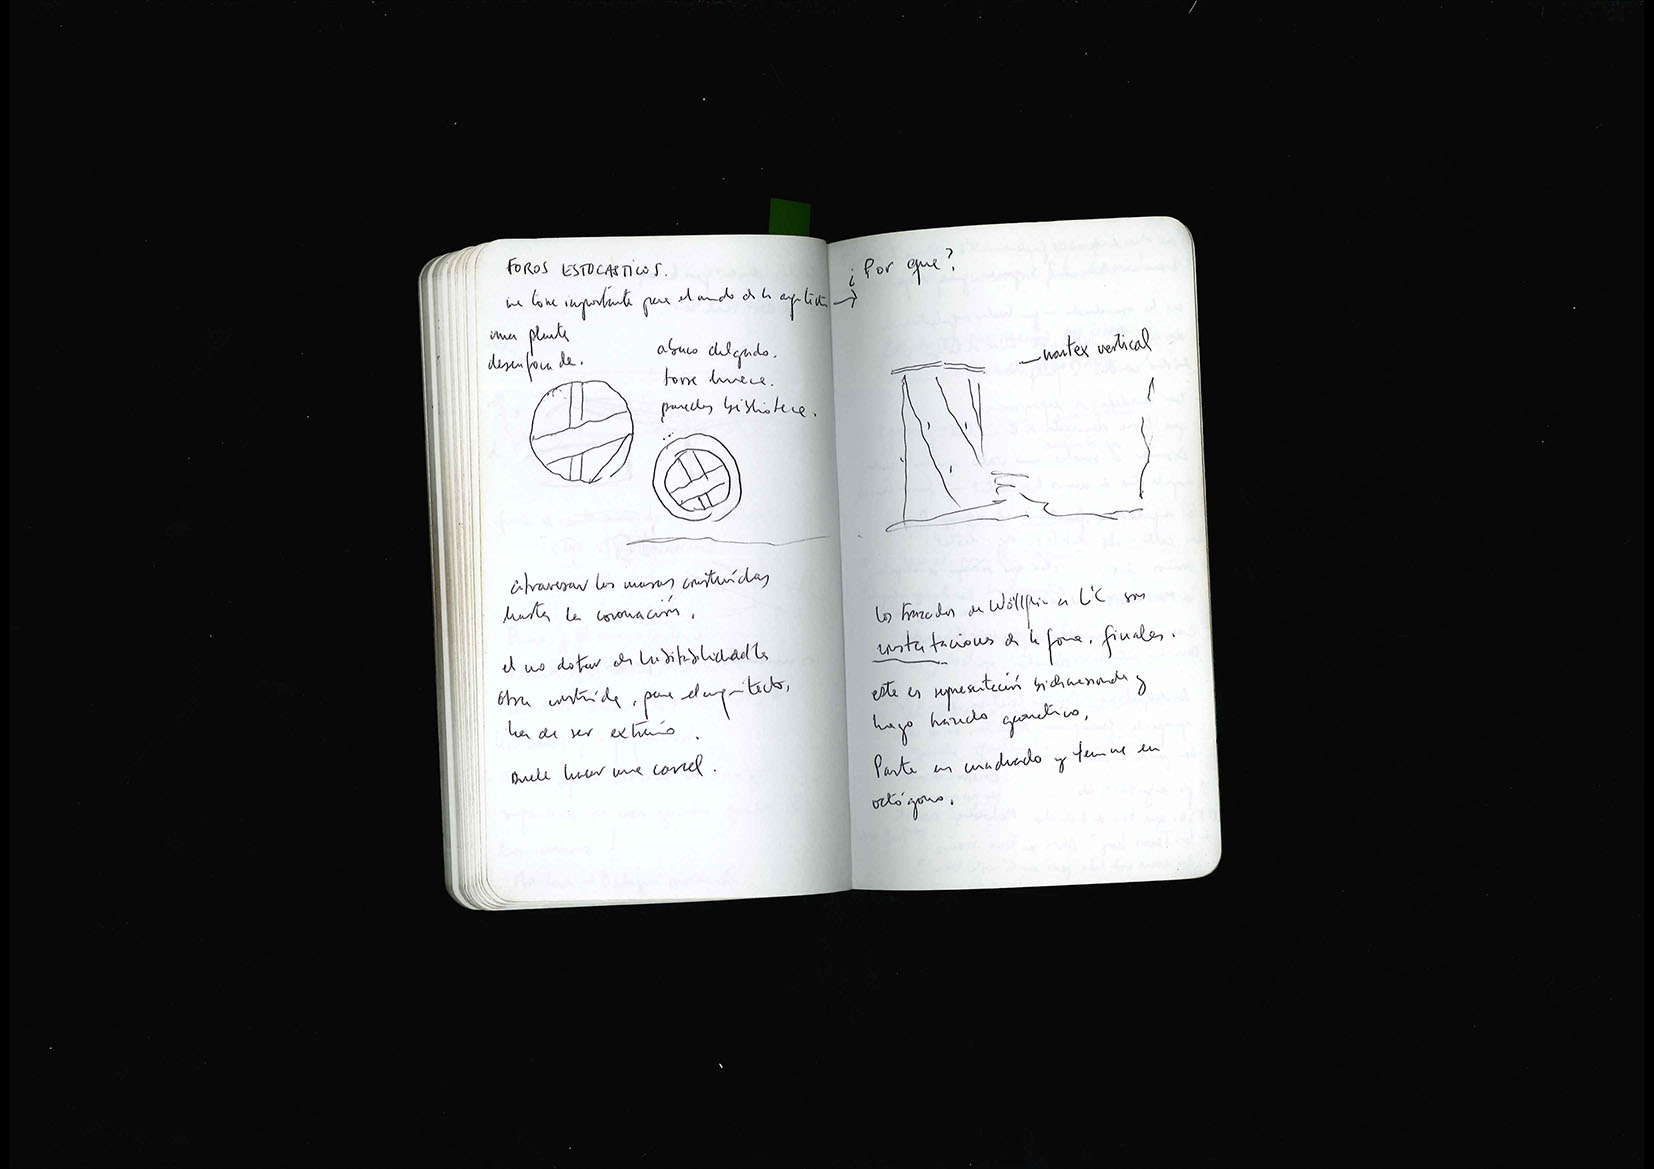 FOROS ESTOCASTICOS.
una torre importante para el mundo de la arquitectura →
una planta
desenfocada.
abaco delgado.
torre hueca.
paredes biblioteca.
atravesar las masas construidas
hasta la coronación.
el no dotar de habitabilidad a la
obra construida, para el arquitecto,
ha de ser extraño.
suele hacer una carcel.
¿Por que?
vertical
los trazados de Wölfflin a L'C son
constataciones de la forma, finales.
este es representación bidimensional y
hago trazado geométrico.
Parte en cuadrado y termina en
octógono.